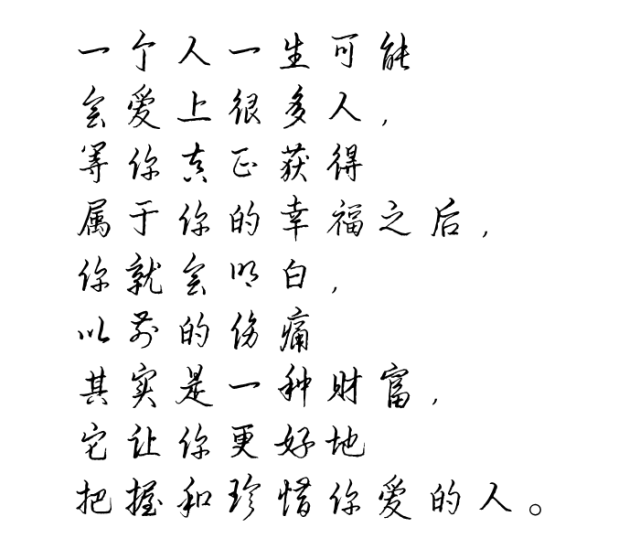 一个人一生可能
会爱上很多人，
等你真正获得
属于你的幸福之后，
你就会明白，
以前的伤痛
其实是一种财富，
它让你更好地
把握和珍惜你爱的人。